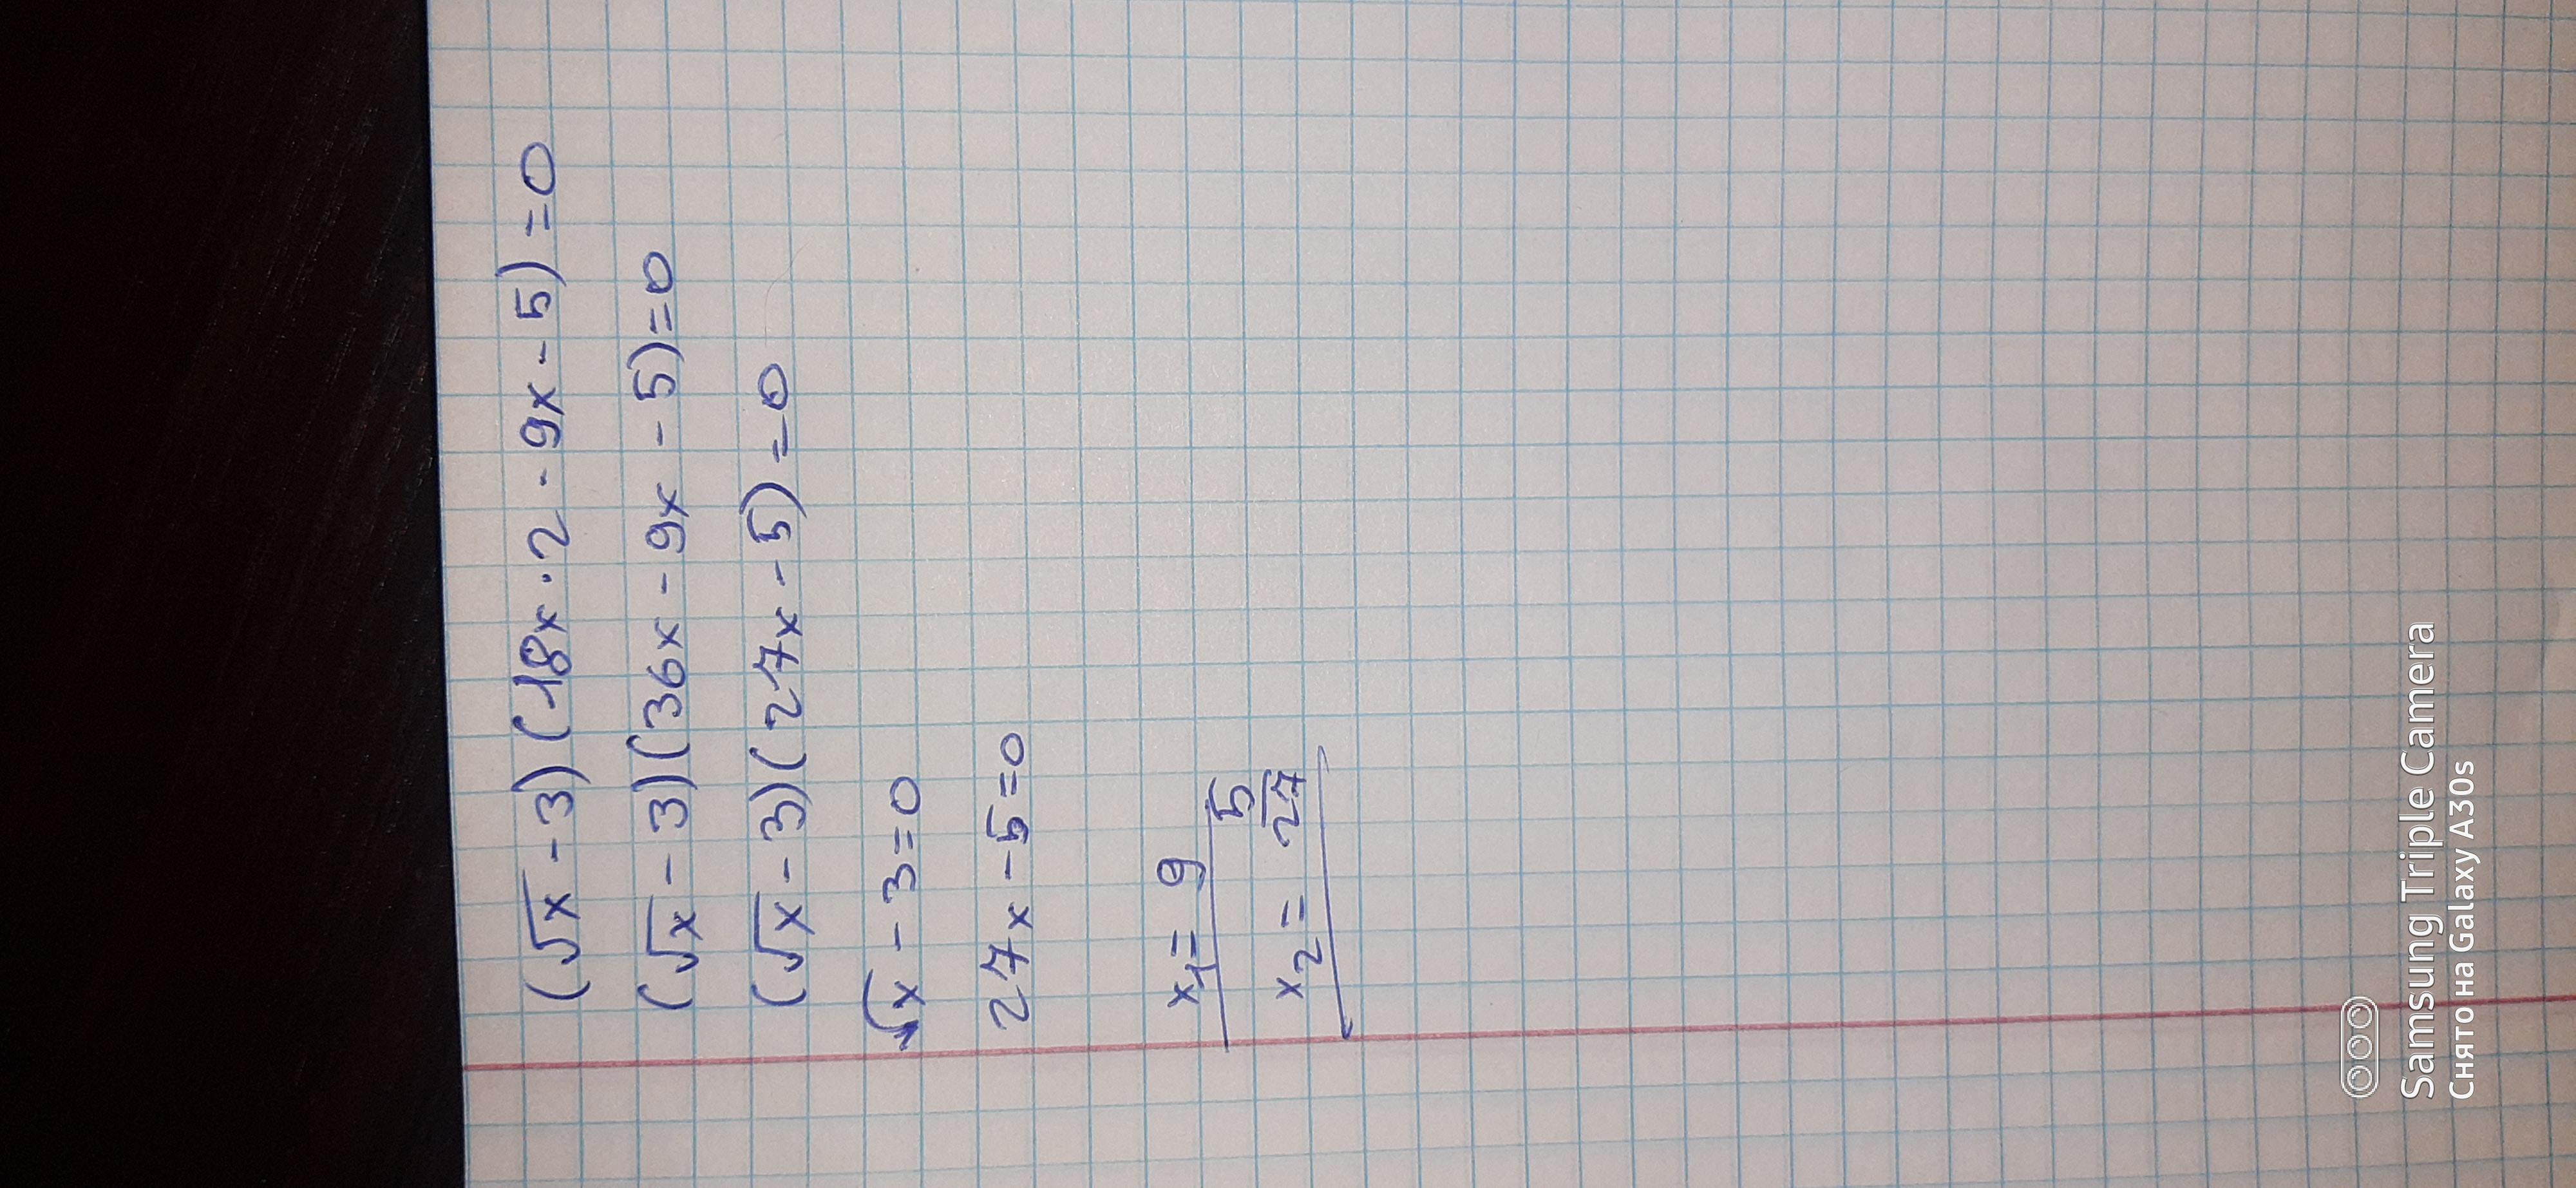 (√x - 3)(18x · 2 - 9x - 5) = 0
(√x - 3)(36x - 9x - 5) = 0
(√x - 3)(27x - 5) = 0
√x - 3 = 0
27x - 5 = 0
x₁ = 9
x₂ = 5/27
Samsung Triple Camera
Снято на Galaxy A30s